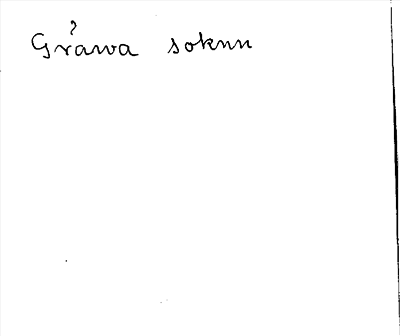 Gråwa soknn